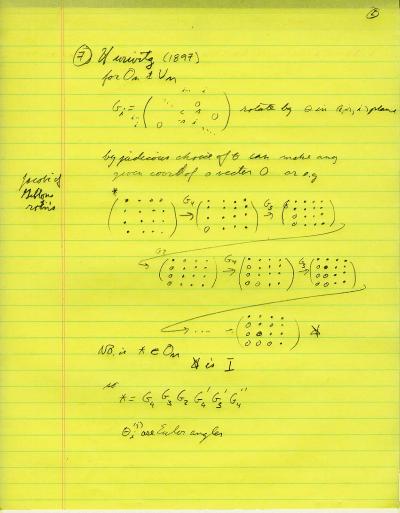 ⑦ Hurwitz (1897)
for On & Un
Gi = ( ) rotate by θ in (i-1, i) plane
by judicious choice of θ can make any
given coord of a vector 0 or e.g
Jacobi &
Givens
* G4 → G3 →
G2 → G4 → G3 →
→ ... →
NB, if * ∈ On
is I
so
* = G4 G3 G2 G4' G3' G4''
θi(j) are Euler angles